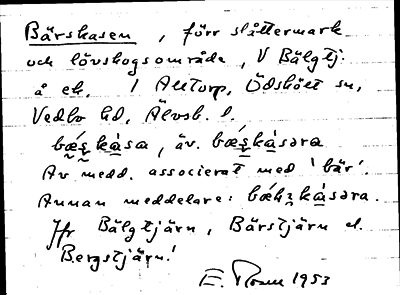 Bärskasen, förr slåttermark
och lövskogsområde, V Bälgtj.
å ek. 1 Alltorp, Ödsköлt sn,
Vedbo hd, Älvsb. l.
bæ̀s̬kàsa, äv. bæ̀s̬kàsəra
Av medd. associerat med 'bär'.
Annan meddelare: kàsəra.
Jfr Bälgtjärn, Bärstjärn el.
Bergstjärn!
E. Rosell 1953